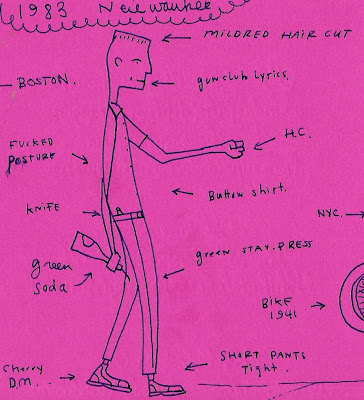 1983 Neilwaukee
MILDRED HAIR CUT
BOSTON.
gun club lyrics.
H.C.
FUCKED
POSTURE
Button shirt.
KNIFE
NYC.
green STAY.PRESS
green
soda
BIKE
1941
SHORT PANTS
Tight.
Cherry
D.M.